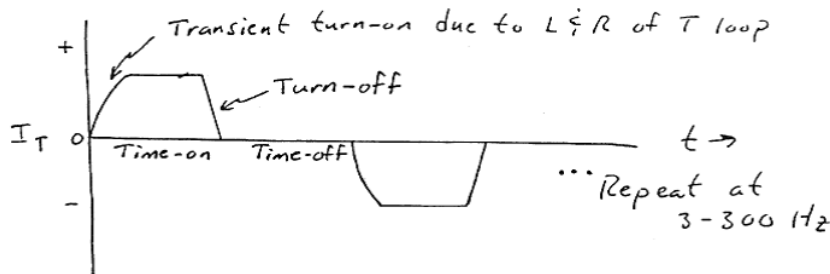 Transient turn-on due to L & R of T loop
+
Turn-off
I_T 0
Time-on Time-off t →
–
... Repeat at
3-300 Hz